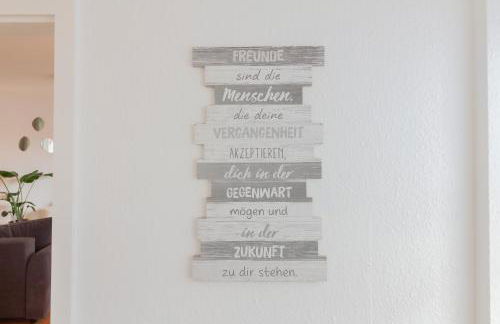 FREUNDE
sind die
Menschen,
die deine
VERGANGENHEIT
AKZEPTIEREN,
dich in der
GEGENWART
mögen und
in der
ZUKUNFT
zu dir stehen.